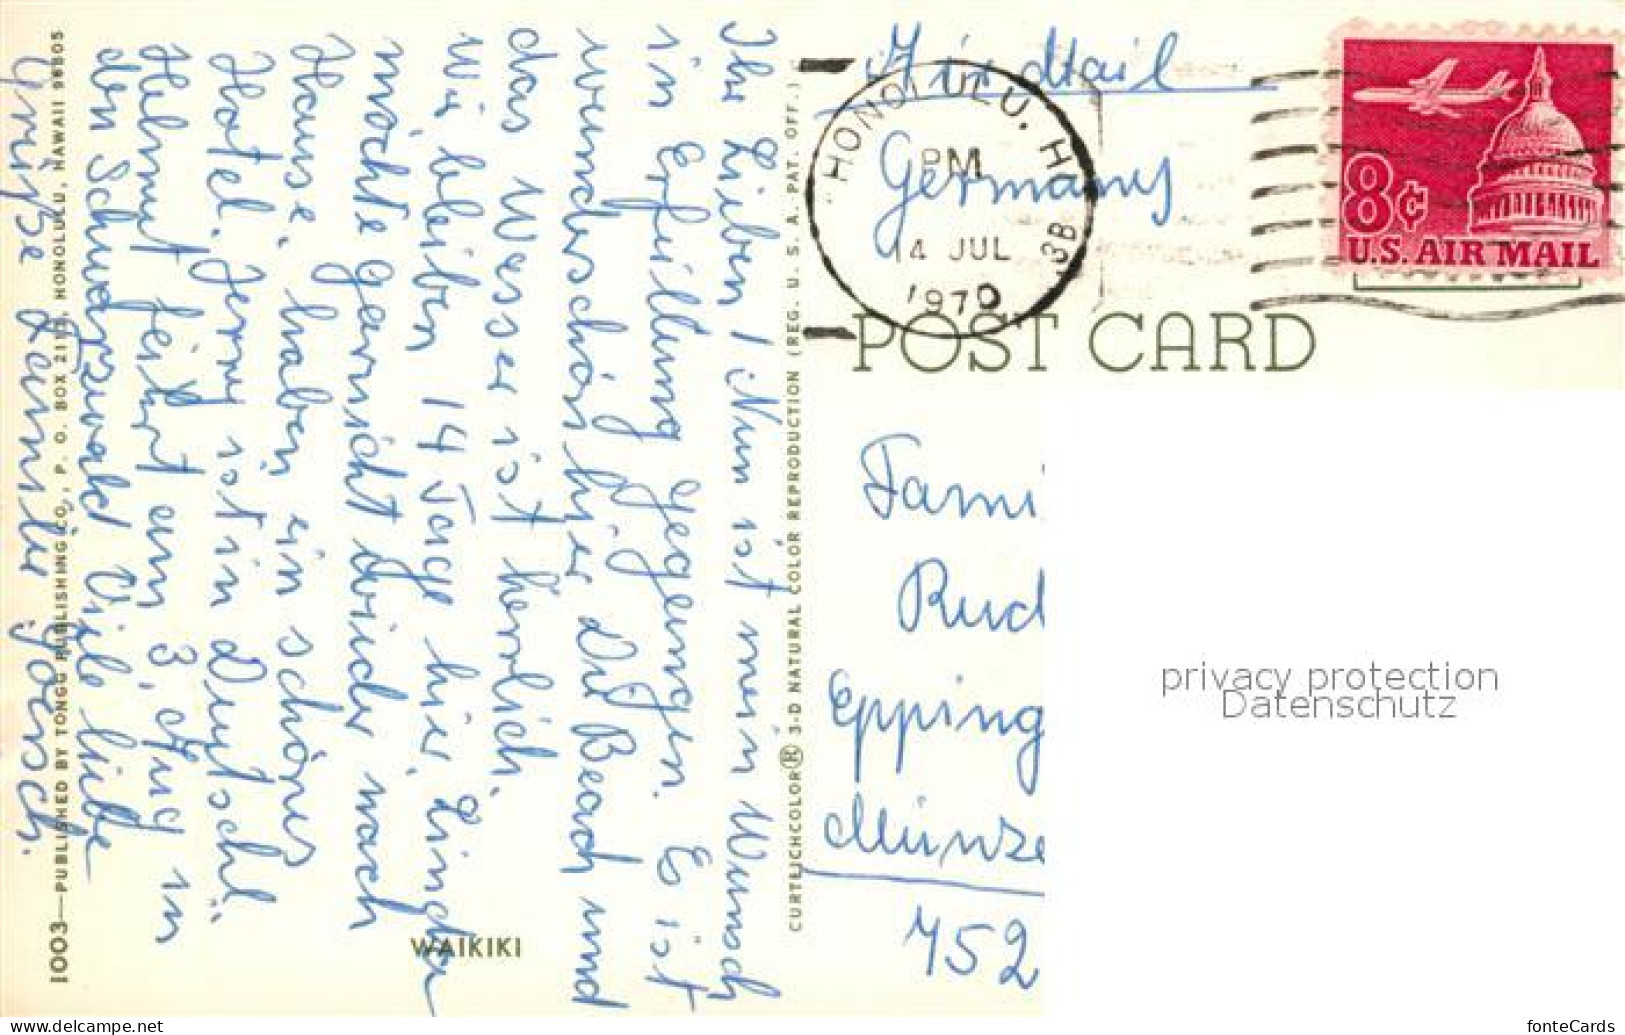 Ihr Lieben! Nun ist mein Wunsch
in Erfüllung gegangen. Es ist
wunderschön hier. Die Beach und
das Wasser ist herrlich.
Wir bleiben 14 Tage hier, Linda
möchte garnicht wieder nach
Hause, haben ein schönes
Hotel. Jerry ist in Deutschl.
Helmut feiert am 3. Aug in
den Schwarzwald Viele liebe
Grüße Familie
1003—PUBLISHED BY TONGG PUBLISHING CO., P. O. BOX HONOLULU, HAWAII 96805
WAIKIKI
CURTEICHCOLOR® 3-D NATURAL COLOR REPRODUCTION (REG. U. S. A. PAT. OFF.)
Air Mail
Germany
HONOLULU, H
PM
14 JUL
1970
3B
8¢
U.S. AIR MAIL
POST CARD
Fami
Rud
Epping
Münze
752
privacy protection
Datenschutz
www.delcampe.net
fonteCards